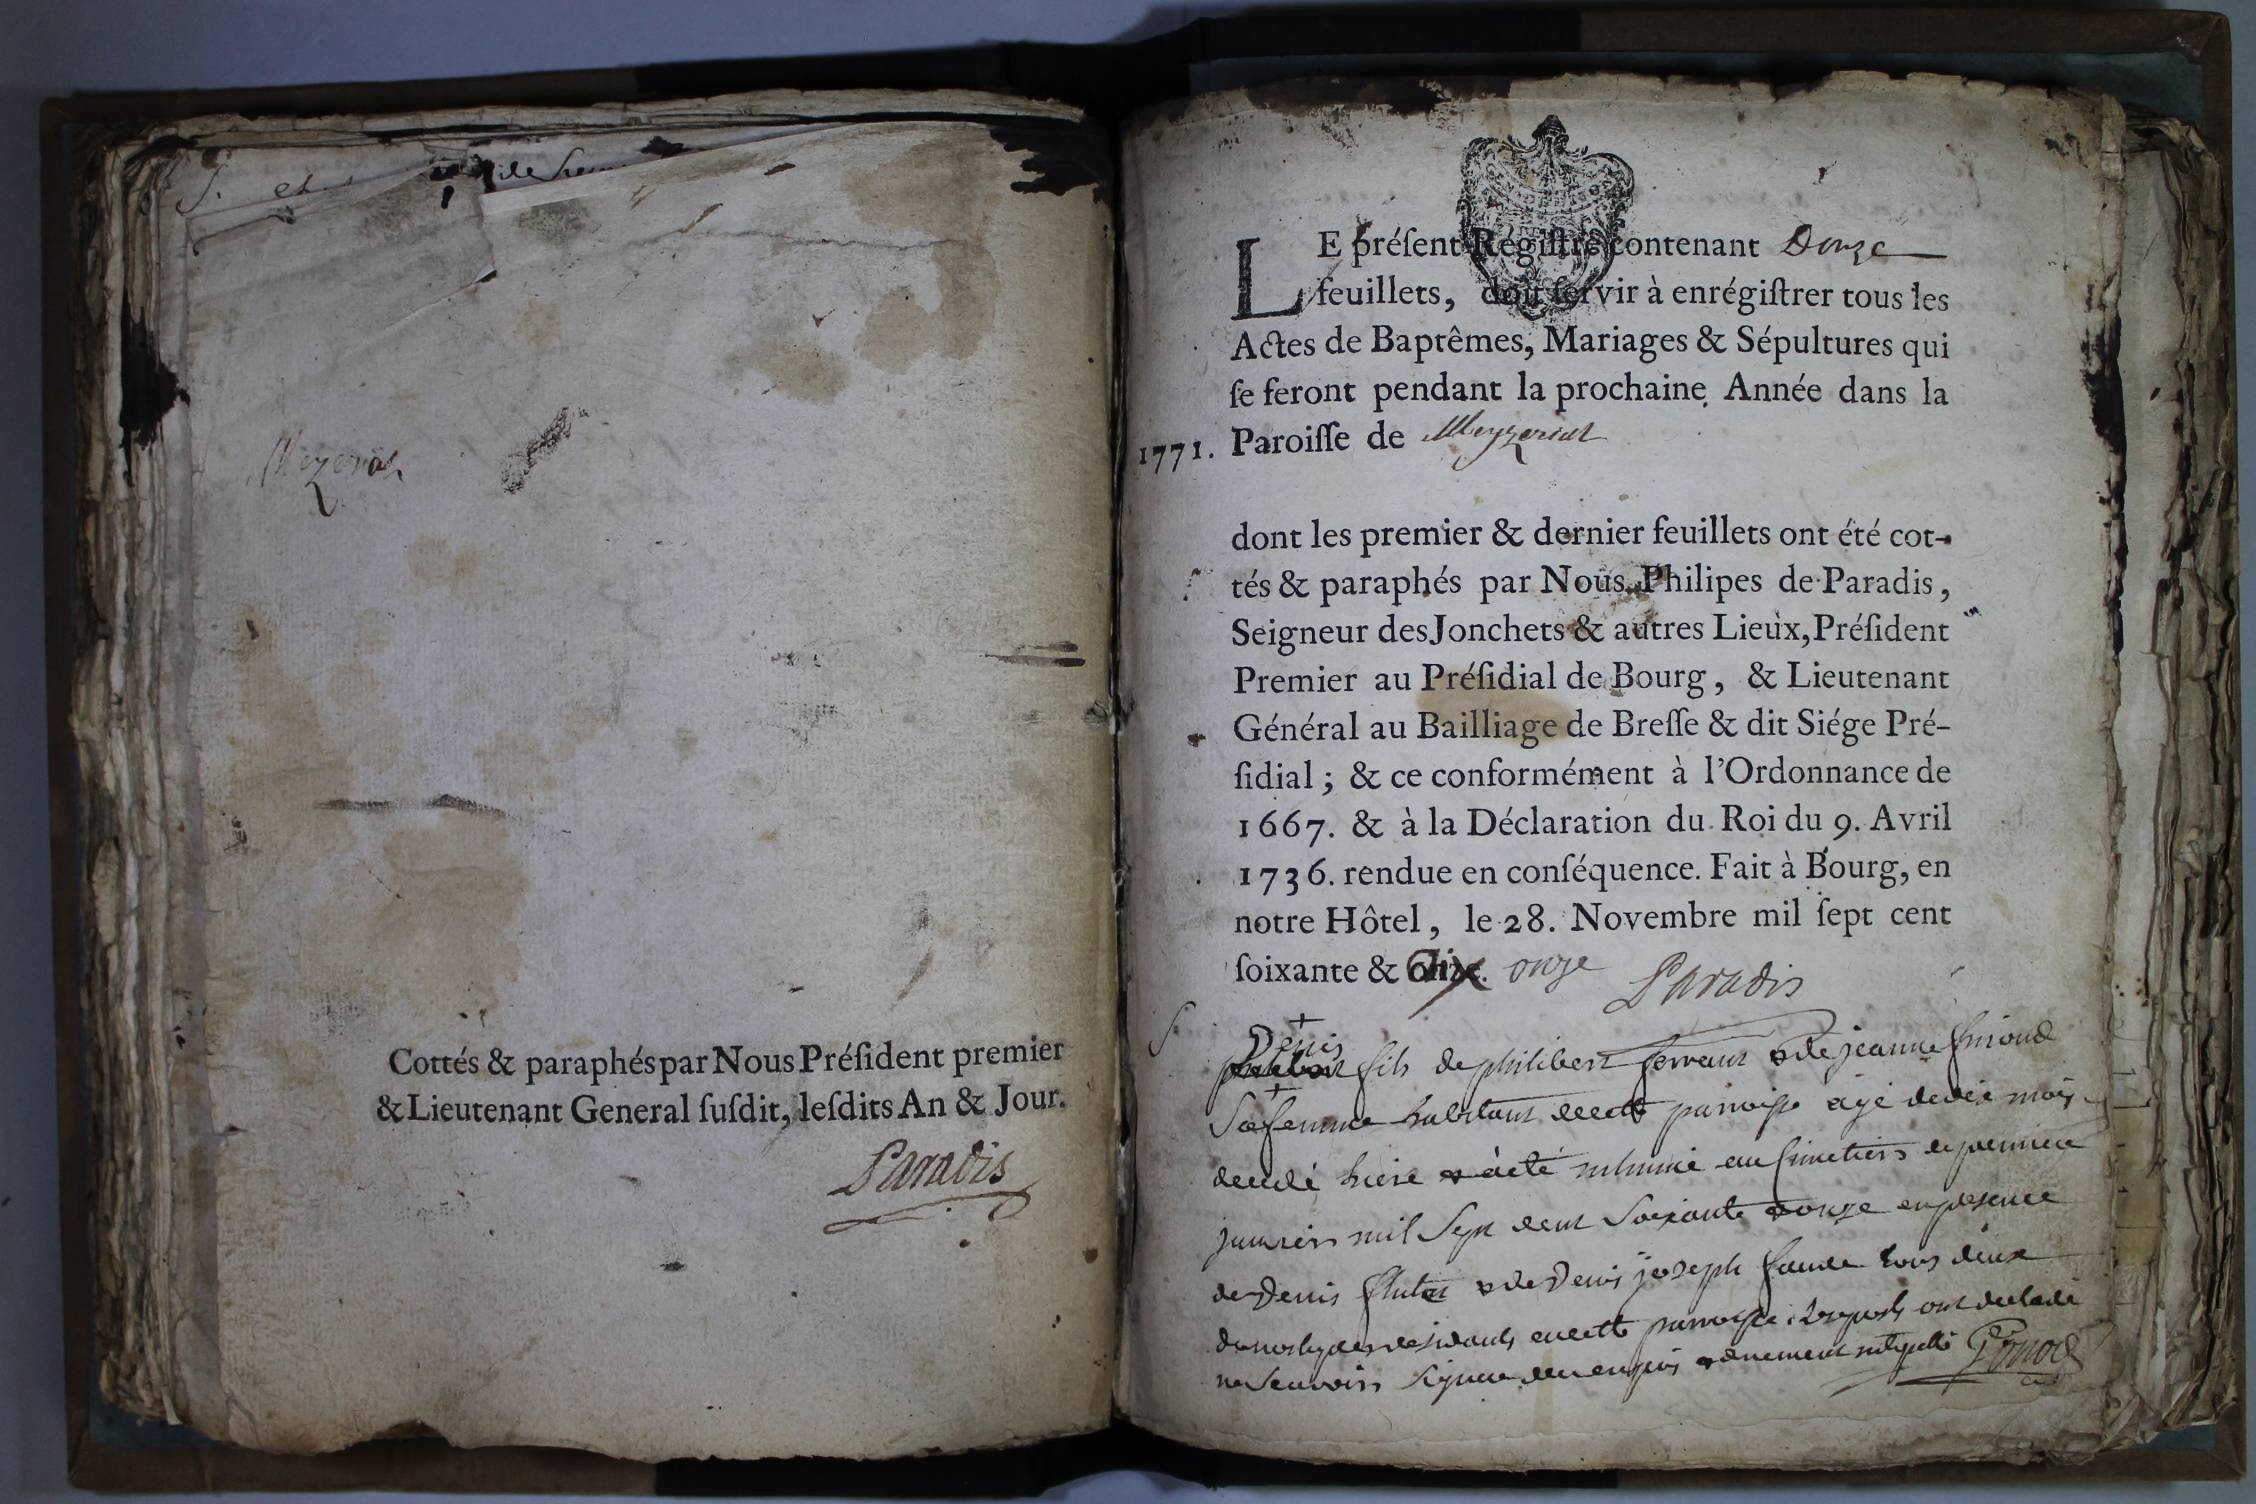 Mezeriat
Cottés & paraphés par Nous Préſident premier
& Lieutenant General ſuſdit, leſdits An & Jour.
Paradis
LE préſent Régiſtre contenant Douze
feuillets, doit ſervir à enrégiſtrer tous les
Actes de Baptêmes, Mariages & Sépultures qui
ſe feront pendant la prochaine Année dans la
1771. Paroiſſe de Meyzeriat
dont les premier & dernier feuillets ont été cot-
tés & paraphés par Nous Philipes de Paradis,
Seigneur des Jonchets & autres Lieux, Préſident
Premier au Préſidial de Bourg, & Lieutenant
Général au Bailliage de Breſſe & dit Siége Pré-
ſidial; & ce conformément à l'Ordonnance de
1667. & à la Déclaration du Roi du 9. Avril
1736. rendue en conſéquence. Fait à Bourg, en
notre Hôtel, le 28. Novembre mil ſept cent
ſoixante & onze Paradis
S
Denis
fils de philibert & de jeanne
sa femme habitant paroisse agé de dix mois
decedé hier & a eté inhumé au cimetiere le premier
janvier mil sept cent soixante & onze en presence
de Denis & de Denis joseph tous deux
paroisse lesquels ont declaré
ne scavoir signer de ce enquis & duement interpellé